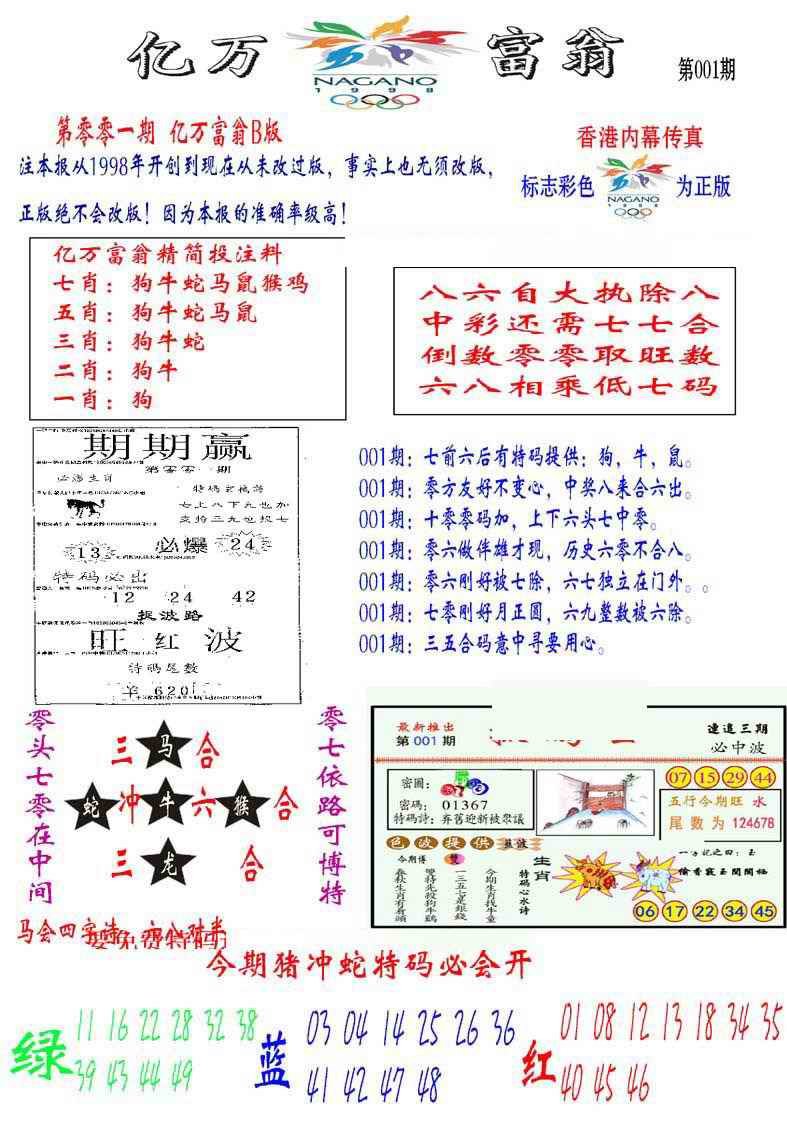 亿万 富翁
NAGANO
1998
第001期
第零零一期 亿万富翁B版
注本报从1998年开创到现在从未改过版，事实上也无须改版，
正版绝不会改版！因为本报的准确率级高！
香港内幕传真
标志彩色
NAGANO
1998
为正版
亿万富翁精简投注料
七肖：狗牛蛇马鼠猴鸡
五肖：狗牛蛇马鼠
三肖：狗牛蛇
二肖：狗牛
一肖：狗
八六自大执除八
中彩还需七七合
倒数零零取旺数
六八相乘低七码
期期赢
第零零一期
必汤生肖
特码玄挽诗
七上八下九也加
支持三九也投七
13 必爆 24
特码必出
12 24 42
捉波路
旺红波
特码尾数
羊620
001期：七前六后有特码提供：狗，牛，鼠。
001期：零方友好不变心，中奖八来合六出。
001期：十零零码加，上下六头七中零。
001期：零六做伴雄才现，历史六零不合八。
001期：零六刚好被七除，六七独立在门外。。
001期：七零刚好月正圆，六九整数被六除。
001期：三五合码意中寻要用心。
零头七零在中间
三 马 合
蛇 冲 牛 六 猴 合
三 龙 合
零七依路可博特
最新推出
第 001 期
連追三期
必中波
密圖：
密碼：01367
特碼詩：弃舊迎新被眾議
07 15 29 44
五行今期旺 水
尾数为 124678
色波提供
藍波
今期博 雙
春秋生肖有着頭
雙特先投狗牛鷄
一三五七是銀錢
今期生肖找牛童
生肖
特码心水诗
偷香竊玉閙閙栖
06 17 22 34 45
马会四字诗：六八对半
今期猪冲蛇特码必会开
绿 11 16 22 28 32 38
39 43 44 49
蓝 03 04 14 25 26 36
41 42 47 48
红 01 08 12 13 18 34 35
40 45 46